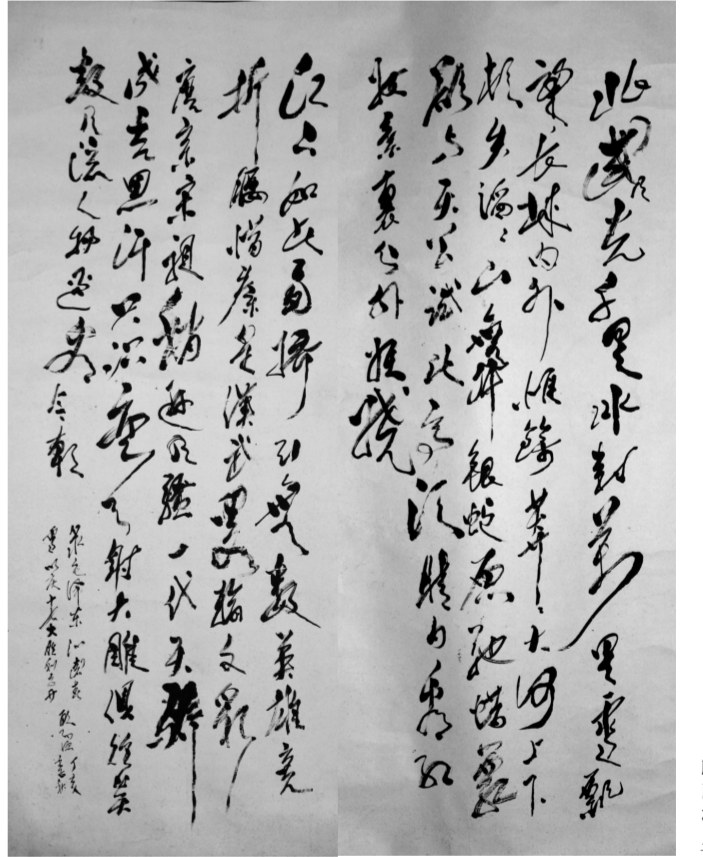 北國风光千里冰封萬里雪飄
望長城内外惟餘莽〻大河上下
頓失滔〻山舞銀蛇原馳蠟象
欲与天公試比高須晴日看紅
妝素裹分外妖嬈
江山如此多嬌引無數英雄競
折腰惜秦皇漢武略輸文彩
唐宗宋祖稍遜风騷一代天驕
成吉思汗只識彎弓射大雕俱往矣
數风流人物還看今朝
录毛泽东沁園春 丁亥